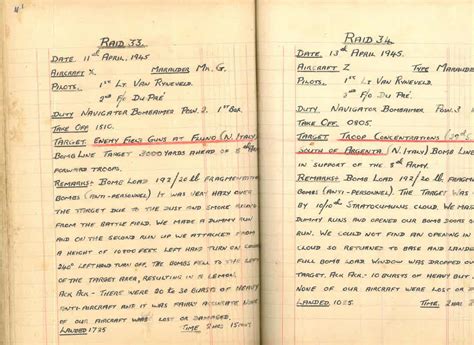 RAID 33.
DATE. 11th APRIL. 1945
AIRCRAFT X. MARAUDER MK. G.
PILOTS. 1st LT. VAN RYNEVELD.
2nd F/O DU PRÉ
DUTY NAVIGATOR BOMBAIMER POSN. 2. 1st BOX.
TAKE OFF 1510.
TARGET. ENEMY FIELD GUNS AT (N. ITALY)
BOMB LINE TARGET 3000 YARDS AHEAD OF 8th
FORWARD TROOPS.
REMARKS:- BOMB LOAD 192/20 lb FRAGMENTATION
BOMBS (ANTI-PERSONNEL) IT WAS VERY HAZY OVER
THE TARGET DUE TO THE DUST AND SMOKE RISING
FROM THE BATTLE FIELD. WE MADE A DUMMY RUN
AND ON THE SECOND RUN UP WE ATTACKED FROM
A HEIGHT OF 10800 FEET. LAST TURN ON COURSE
240° LEFT HAND TURN OFF. THE BOMBS FELL TO THE LEFT
OF THE TARGET AREA, RESULTING IN A LEMON.
ACK ACK - THERE WERE 20 TO 30 BURSTS OF HEAVY
ANTI-AIRCRAFT AND IT WAS FAIRLY ACCURATE NONE
OF OUR AIRCRAFT WERE LOST OR DAMAGED.
LANDED 1725 TIME 2 HRS 15
RAID 34.
DATE. 13th APRIL. 1945.
AIRCRAFT Z TYPE MARAUDER
PILOTS. 1st LT. VAN RYNEVELD.
2nd F/O DU PRÉ.
DUTY. NAVIGATOR BOMBAIMER POSN. 3
TAKE OFF 0805.
TARGET. TROOP CONCENTRATIONS
SOUTH OF ARGENTA (N. ITALY) BOMB LINE
IN SUPPORT OF THE 8th ARMY.
REMARKS:- BOMB LOAD 192/20 lb FRAG
BOMBS (ANTI-PERSONNEL). THE TARGET WAS
BY 10/10th STRATOCUMULUS CLOUD. WE MA
DUMMY RUNS AND OPENED OUR BOMB DOORS
RUN. WE COULD NOT FIND AN OPENING IN
CLOUD SO RETURNED TO BASE AND LANDED
FULL BOMB LOAD WINDOW WAS DROPPED ON
TARGET. ACK ACK - 10 BURSTS OF HEAVY BUT
NONE OF OUR AIRCRAFT WERE LOST OR
LANDED 1025. TIME 2 HRS